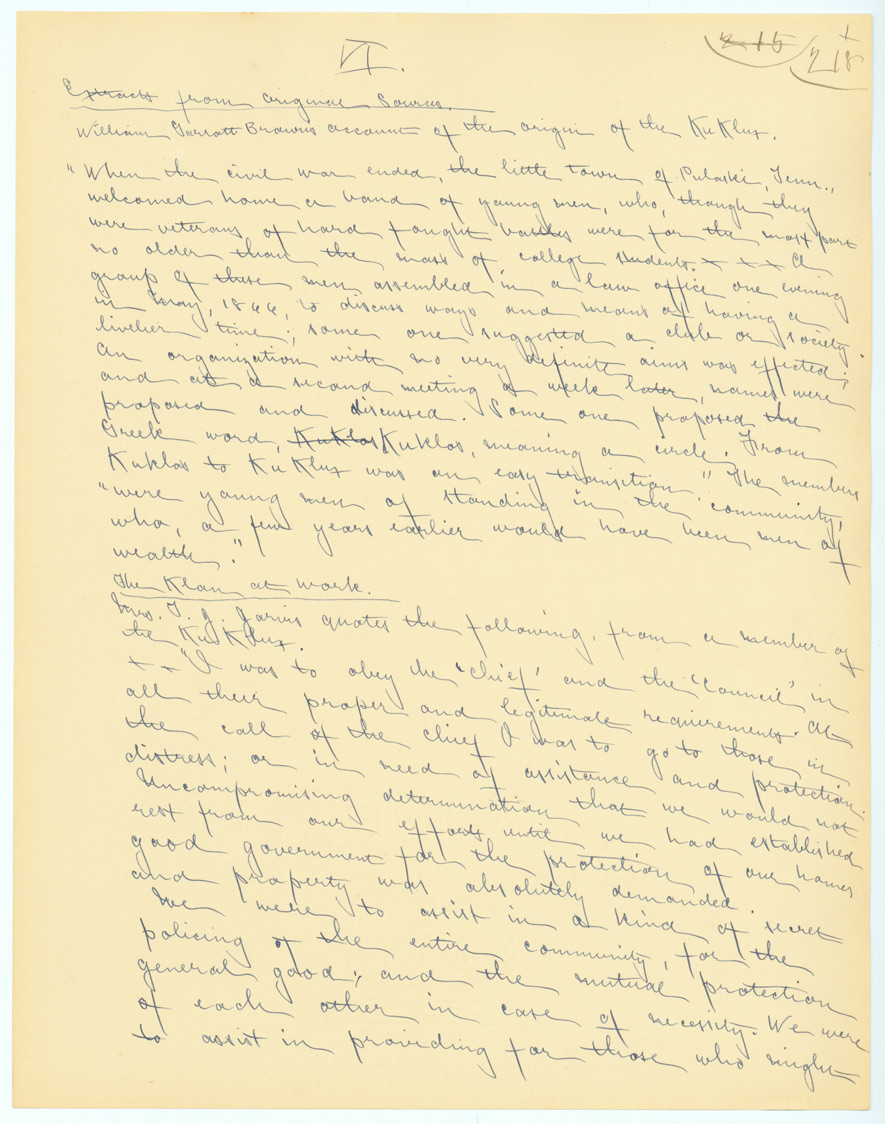 VI.
2 15
2 18
Extracts from original Sources.
William Garrott Browns account of the origin of the KuKlux.
"When the civil war ended, the little town of Pulaski, Tenn.,
welcomed home a band of young men, who, though they
were veterans of hard fought battles were for the most part
no older than the mass of college students. x x x A
group of these men assembled in a law office one evening
in May, 1866, to discuss ways and means of having a
livelier time; some one suggested a club or society.
An organization with no very definite aims was effected;
and at a second meeting a week later, names were
proposed and discussed. Some one proposed the
Greek word, Kuklos Kuklos, meaning a circle. From
Kuklos to KuKlux was an easy transition." The members
"were young men of standing in the community,
who, a few years earlier would have been men of
wealth."
The Klan at work.
Mrs. T. J. Jarvis quotes the following, from a member of
the KuKlux.
x x "I was to obey the 'Chief' and the 'Council' in
all their proper and legitimate requirements. At
the call of the chief I was to go to those in
distress; or in need of assistance and protection.
Uncompromising determination that we would not
rest from our efforts until we had established
good government for the protection of our homes
and property was absolutely demanded.
We were to assist in a kind of secret
policing of the entire community, for the
general good; and the mutual protection
of each other in case of necessity. We were
to assist in providing for those who might